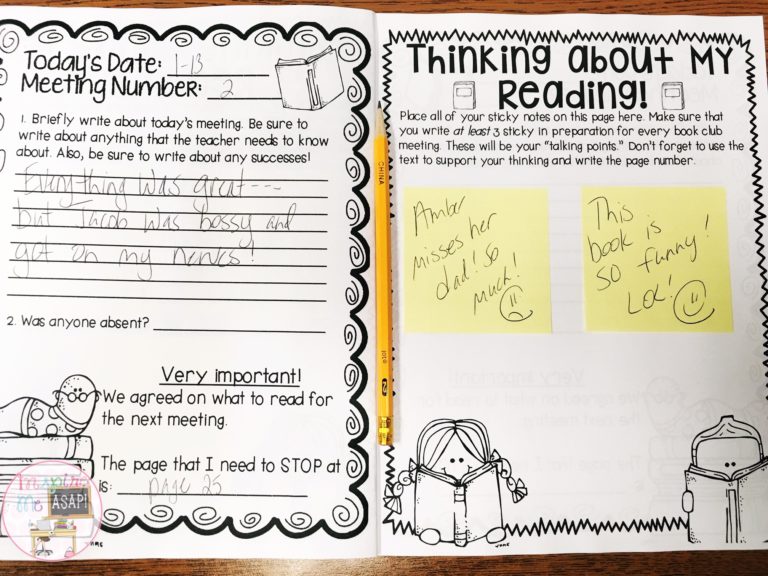 Today's Date: 1-13
Meeting Number: 2
1. Briefly write about today's meeting. Be sure to
write about anything that the teacher needs to know
about. Also, be sure to write about any successes!
Everything was great---
but Jacob was bossy and
got on my nerves!
2. Was anyone absent?
Very important!
We agreed on what to read for
the next meeting.
The page that I need to STOP at
is: page 25
Inspire
Me
ASAP!
Thinking about MY
Reading!
Place all of your sticky notes on this page here. Make sure that
you write at least 3 sticky in preparation for every book club
meeting. These will be your "talking points." Don't forget to use the
text to support your thinking and write the page number.
Amber
misses her
dad! So
much!
This
book is
SO funny!
LOL!
CHINA